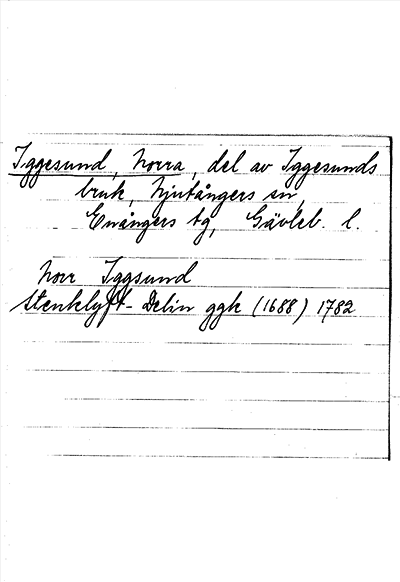 Iggesund, Norra, del av Iggesunds
bruk, Njutångers sn,
Enångers tg, Gävleb. l.
Norr Iggsund
Stenklyft - Delin ggk (1688) 1782